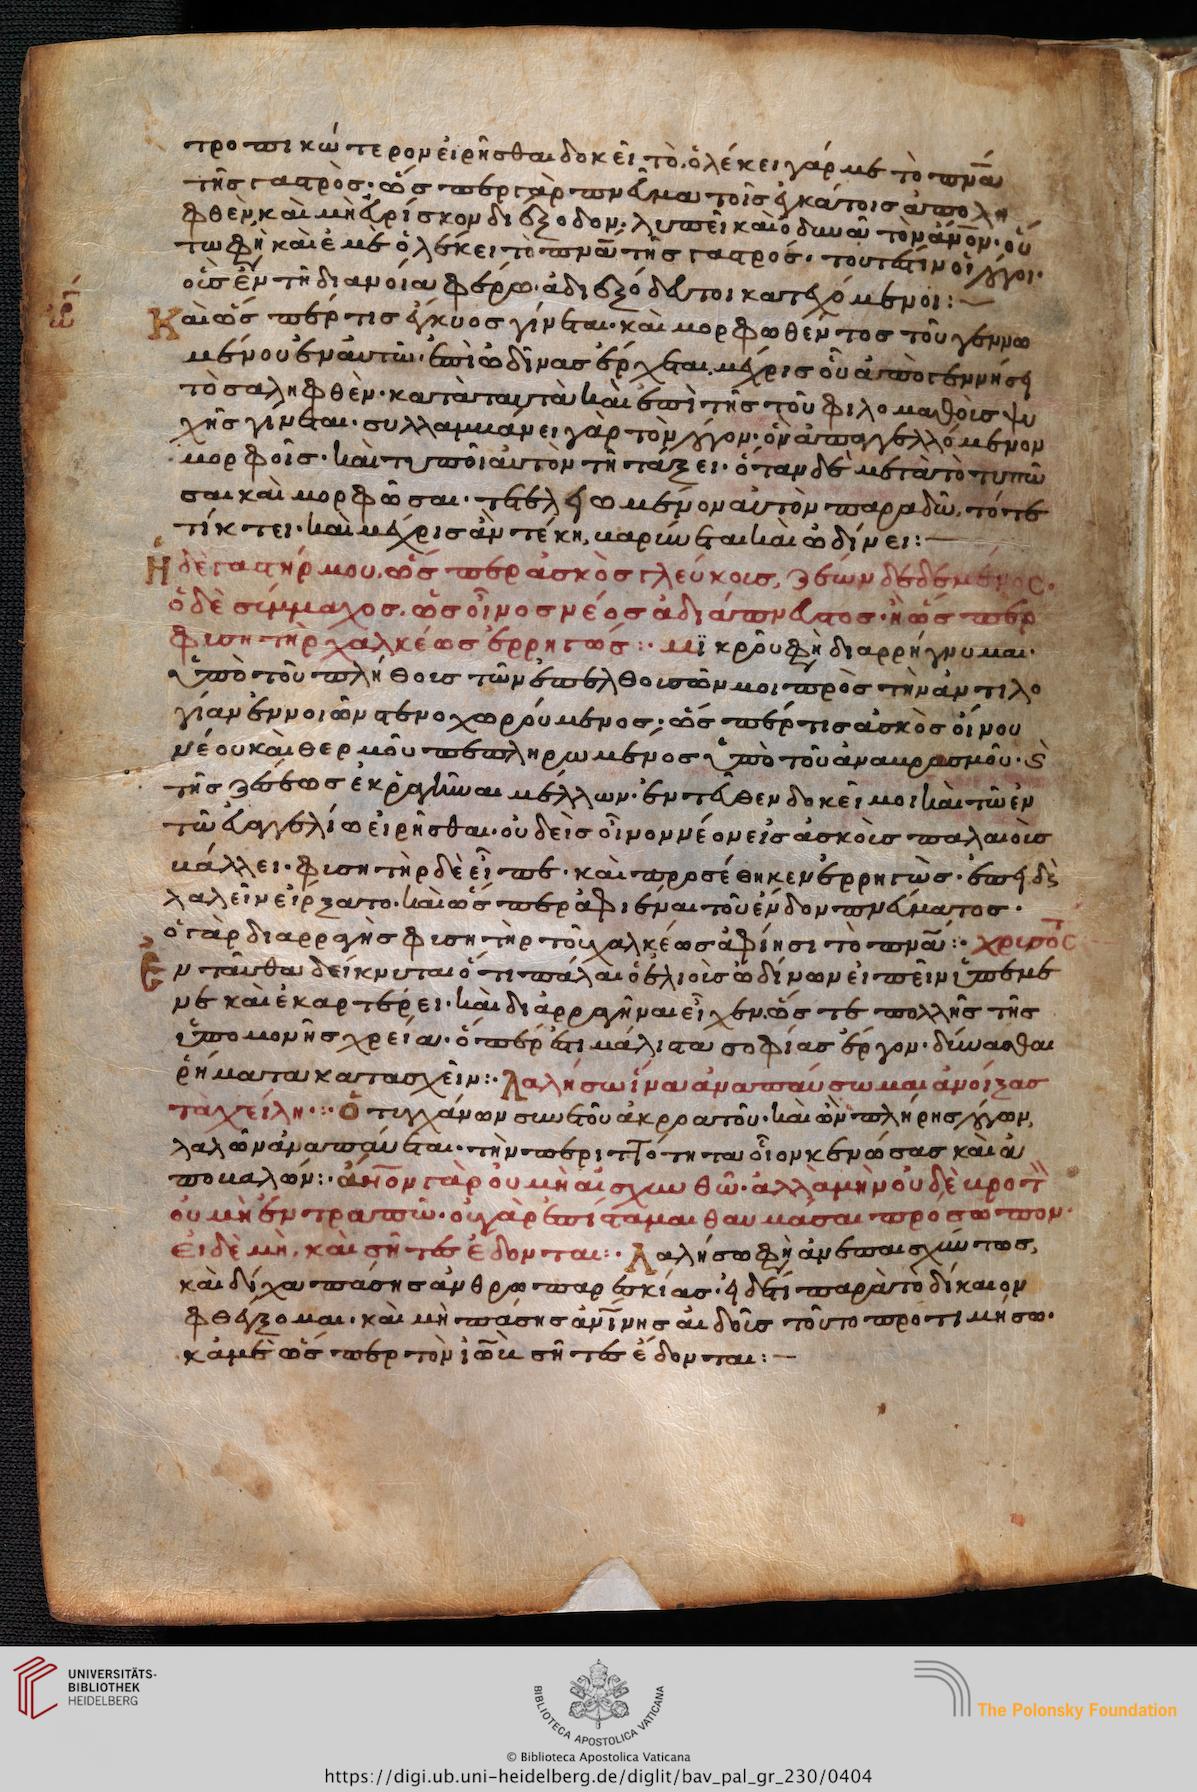 τροπικώτερον εἰρῆσθαι δοκεῖ τὸ. ὀλέκει γάρ με τὸ πν̅α
τῆς γαστρὸς· ὥσπερ γὰρ πνεῦμα τοῖς ἐγκάτοις ἀπολη
φθὲν, καὶ μὴ εὑρίσκον διέξοδον· λυπεῖ καὶ ὀδυνᾷ τὸν ἄν̅ον· οὕ
τω φη καὶ ἐμὲ ὀλέκει τὸ πν̅α τῆς γαστρός· τουτέστιν οἱ λόγοι·
οὓς ἐν τῇ διανοίᾳ φέρω· ἀδιεξόδευτοι κατεχόμενοι:~
ὠρ
Καὶ ὥσπερ τις ἔγκυος γίνεται· καὶ μορφωθέντος τοῦ γεννω
μένου ἐν αὐτῶ· ἐπὶ ὠδῖνας ἔρχεται. μέχρις οὗ ἀπογεννήσει
τὸ συλληφθὲν· κατὰ ταυτὰ καὶ ἐπὶ τῆς τοῦ φιλομαθοῦς ψυ
χῆς γίνεται· συλλαμβάνει γὰρ τὸν λόγον· ὃν ἀπαγγελλόμενον
μορφοῖς· καὶ τυποῖ αὐτὸν τῇ τάξει· ὅταν δὲ μετὰ τὸ τυπῶ
σαι καὶ μορφῶσαι· τετελειωμένον αὐτὸν παραδῶ, τότε
τίκτει· καὶ μέχρις ἂν τέκῃ, βαρύνεται καὶ ὠδίνει:~
Ἡ δὲ γαστήρ μου, ὥσπερ ἀσκὸς γλεύκους, ζέων δεδεμένος·
ὁ δὲ σύμμαχος. ὡς οἶνος νέος ἀδιάπνευστος· ἢ ὥσπερ
φυσητὴρ χαλκέως ἐρρηγώς:· μικροῦ φη διαρρήγνυμαι·
ὑπὸ τοῦ πλήθους τῶν ἐπελθουσῶν μοι πρὸς τὴν ἀντιλο
γίαν ἐννοιῶν στενοχωρούμενος· ὥσπερ τις ἀσκὸς οἴνου
νέου καὶ θερμοῦ πεπληρωμένος ὑπὸ τοῦ ἀναβρασμοῦ· ϗ
τῆς ζέσεως ἐκραγῆναι μέλλων· ἐντεῦθεν δοκεῖ μοι καὶ τῶ ἐν
τῶ εὐαγγελίω εἰρῆσθαι· οὐδεὶς οἶνον νέον εἰς ἀσκοὺς παλαιοὺς
βάλλει· φυσητὴρ δὲ εἶπε· καὶ προσέθηκεν ἐρρηγὼς· ἐπεὶ δὲ
λαλεῖν εἴρξατο. καὶ ὥσπερ ἀφιέναι τοῦ ἔνδον πνεύματος·
ὁ γὰρ διαρραγῆς φυσητὴρ τοῦ χαλκέως ἀφίησι τὸ πν̅α:· χρυσοσ̅τ
Ἐνταῦθα δείκνυται ὅτι πάλαι ὁ ἐλιοὺς ὠδίνων εἰπεῖν ὑπέμε
νε καὶ ἐκαρτέρει· καὶ διαρραγῆναι εἶχεν. ὥστε πολλῆς τῆς
ὑπομονῆς χρεία· ὅπερ ἐστὶ μάλιστα σοφίας ἔργον· δύνασθαι
ῥήματα κατασχεῖν:· Λαλήσω ἵνα ἀναπαύσωμαι ἀνοίξας
τὰ χείλη:· Ὁ τυγχάνων συνετοῦ ἀκροατοῦ· καὶ ὢν πλήρης λόγων,
λαλῶν ἀναπαύεται· τὴν περιττότητα οἷον κενώσας καὶ ἀ
ποβαλών:· ἄν̅ον γὰρ οὐ μὴ αἰσχυνθῶ· ἀλλὰ μὴν οὐδὲ βροτ
οὐ μὴ ἐντραπῶ· οὐ γὰρ ἐπίσταμαι θαυμάσαι πρόσωπον·
εἰ δὲ μὴ, καὶ σῆτες ἔδονται:· Λαλήσω φη ἀνεπαισχύντως,
καὶ δίχα πάσης ἀνθρωπαρεσκίας· εἰ δέ τι παρὰ τὸ δίκαιον
φθέγξομαι· καὶ μὴ πάσης ἀν̅ίνης αἰδοῦς τοῦτο προτιμήσω·
κἀμὲ ὥσπερ τὸν ἰὼβ σῆτες ἔδονται:~
UNIVERSITÄTS-
BIBLIOTHEK
HEIDELBERG
BIBLIOTECA APOSTOLICA VATICANA
© Biblioteca Apostolica Vaticana
The Polonsky Foundation
https://digi.ub.uni-heidelberg.de/diglit/bav_pal_gr_230/0404